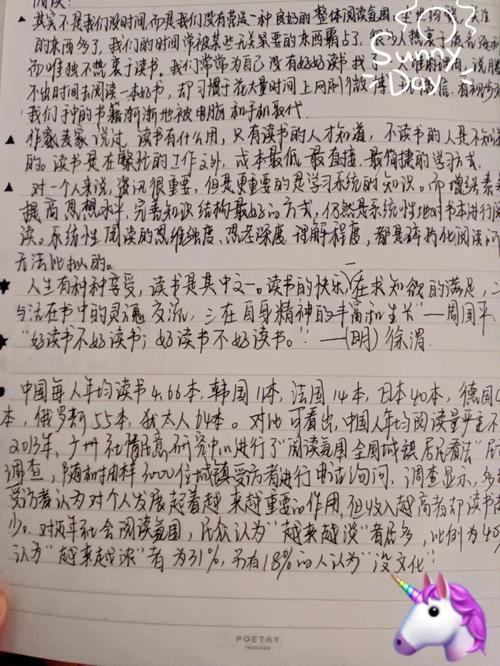 阅读?
▲ 其实不是我们没时间,而是我们没有营造一种良好的整体阅读氛围
的东西多了,我们的时间常被某些无关紧要的东西霸占了,很多人热衷于
而唯独不热衷于读书。我们常常为自己没有好好读书找
不出时间去阅读一本好书,却习惯于花大量时间上网刷微博
我们手中的书籍渐渐地被电脑和手机取代
▲ 作家麦家说过 读书有什么用,只有读书的人才知道,不读书的人是不知
的。读书是在繁忙的工作之外,成本最低 最直接 最简捷的学习方式.
▲ 对一个人来说,资讯很重要,但是更重要的是学习系统的知识。而增强素
提高思想水平,完善知识结构最好的方式,仍然是系统性地对书本进行阅
读。系统性阅读的思维强度、思考深度 理解程度,都是碎片化阅读
方法比拟的。
人生有种种享受,读书是其中之一。读书的快乐一在求知欲的满足,二
与活在书中的灵魂交流,三在自身精神的丰富和生长"——周国平
★ "好读书不好读书;好读书不好读书。"——(明)徐渭
● 中国每人年均读书4.66本,韩国11本,法国14本,日本40本,德国
本,俄罗斯55本,犹太人64本。对比可看出,中国人年均阅读量严重不
2013年,广州社情民意研究中心进行了"阅读氛围 全国城镇居民看法"
调查,随机抽样3000位城镇受访者进行电话询问,调查显示,多
受访者认为对个人发展起着越来越重要的作用,但收入越高者却读书
少。对两年社会阅读氛围,民众认为"越来越淡"者居多,比例为40
认为"越来越浓"者为31%,另有18%的人认为"没变化"
POETRY
Sunny Day